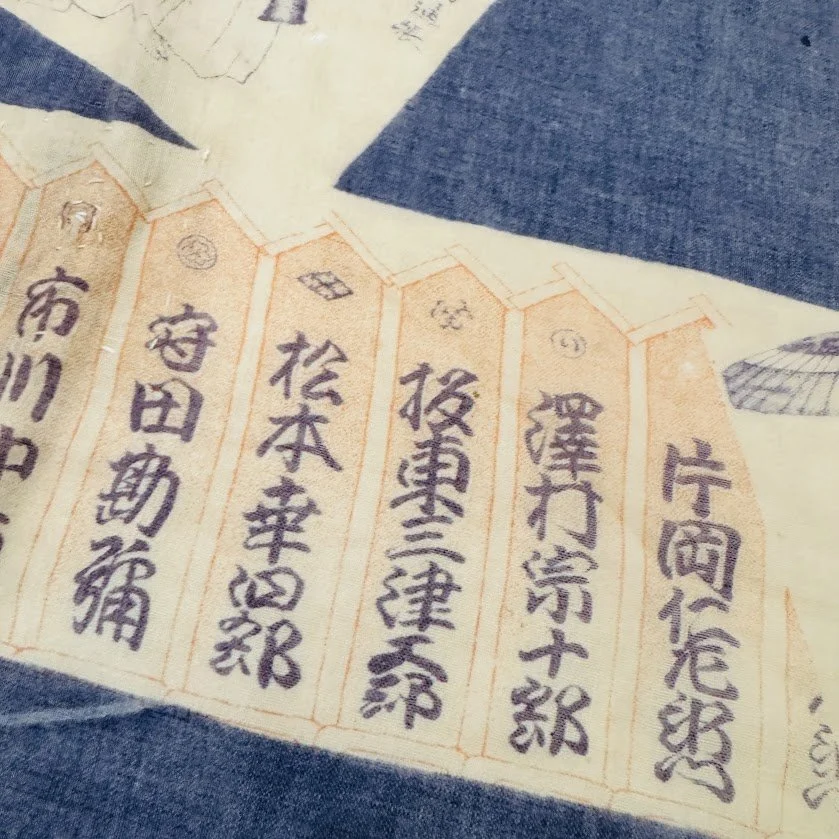 進帳
片岡仁左衛門
澤村宗十郎
坂東三津五郎
松本幸四郎
守田勘彌
市川中